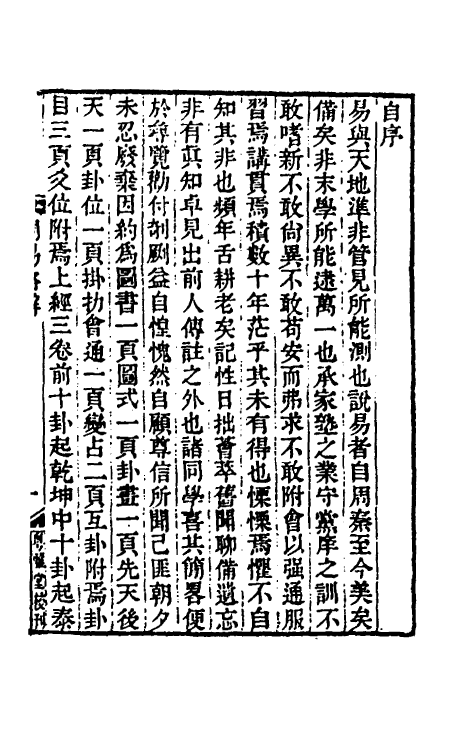 自序
易與天地準非管見所能測也說易者自周秦至今美矣
備矣非末學所能逮萬一也承家塾之業守黨庠之訓不
敢嗜新不敢尚異不敢苟安而弗求不敢附會以强通服
習焉講貫焉積數十年茫乎其未有得也慄慄焉懼不自
知其非也頻年舌耕老矣記性日拙薈萃舊聞聊備遺忘
非有眞知卓見出前人傳註之外也諸同學喜其簡畧便
於尋覽勸付剞劂益自惶愧然自顧尊信所聞己匪朝夕
未忍廢棄因約爲圖書一頁圖式一頁卦畫一頁先天後
天一頁卦位一頁掛扐會通一頁變占二頁互卦附焉卦
目三頁爻位附焉上經三卷前十卦起乾坤中十卦起泰
周易
堂校刊